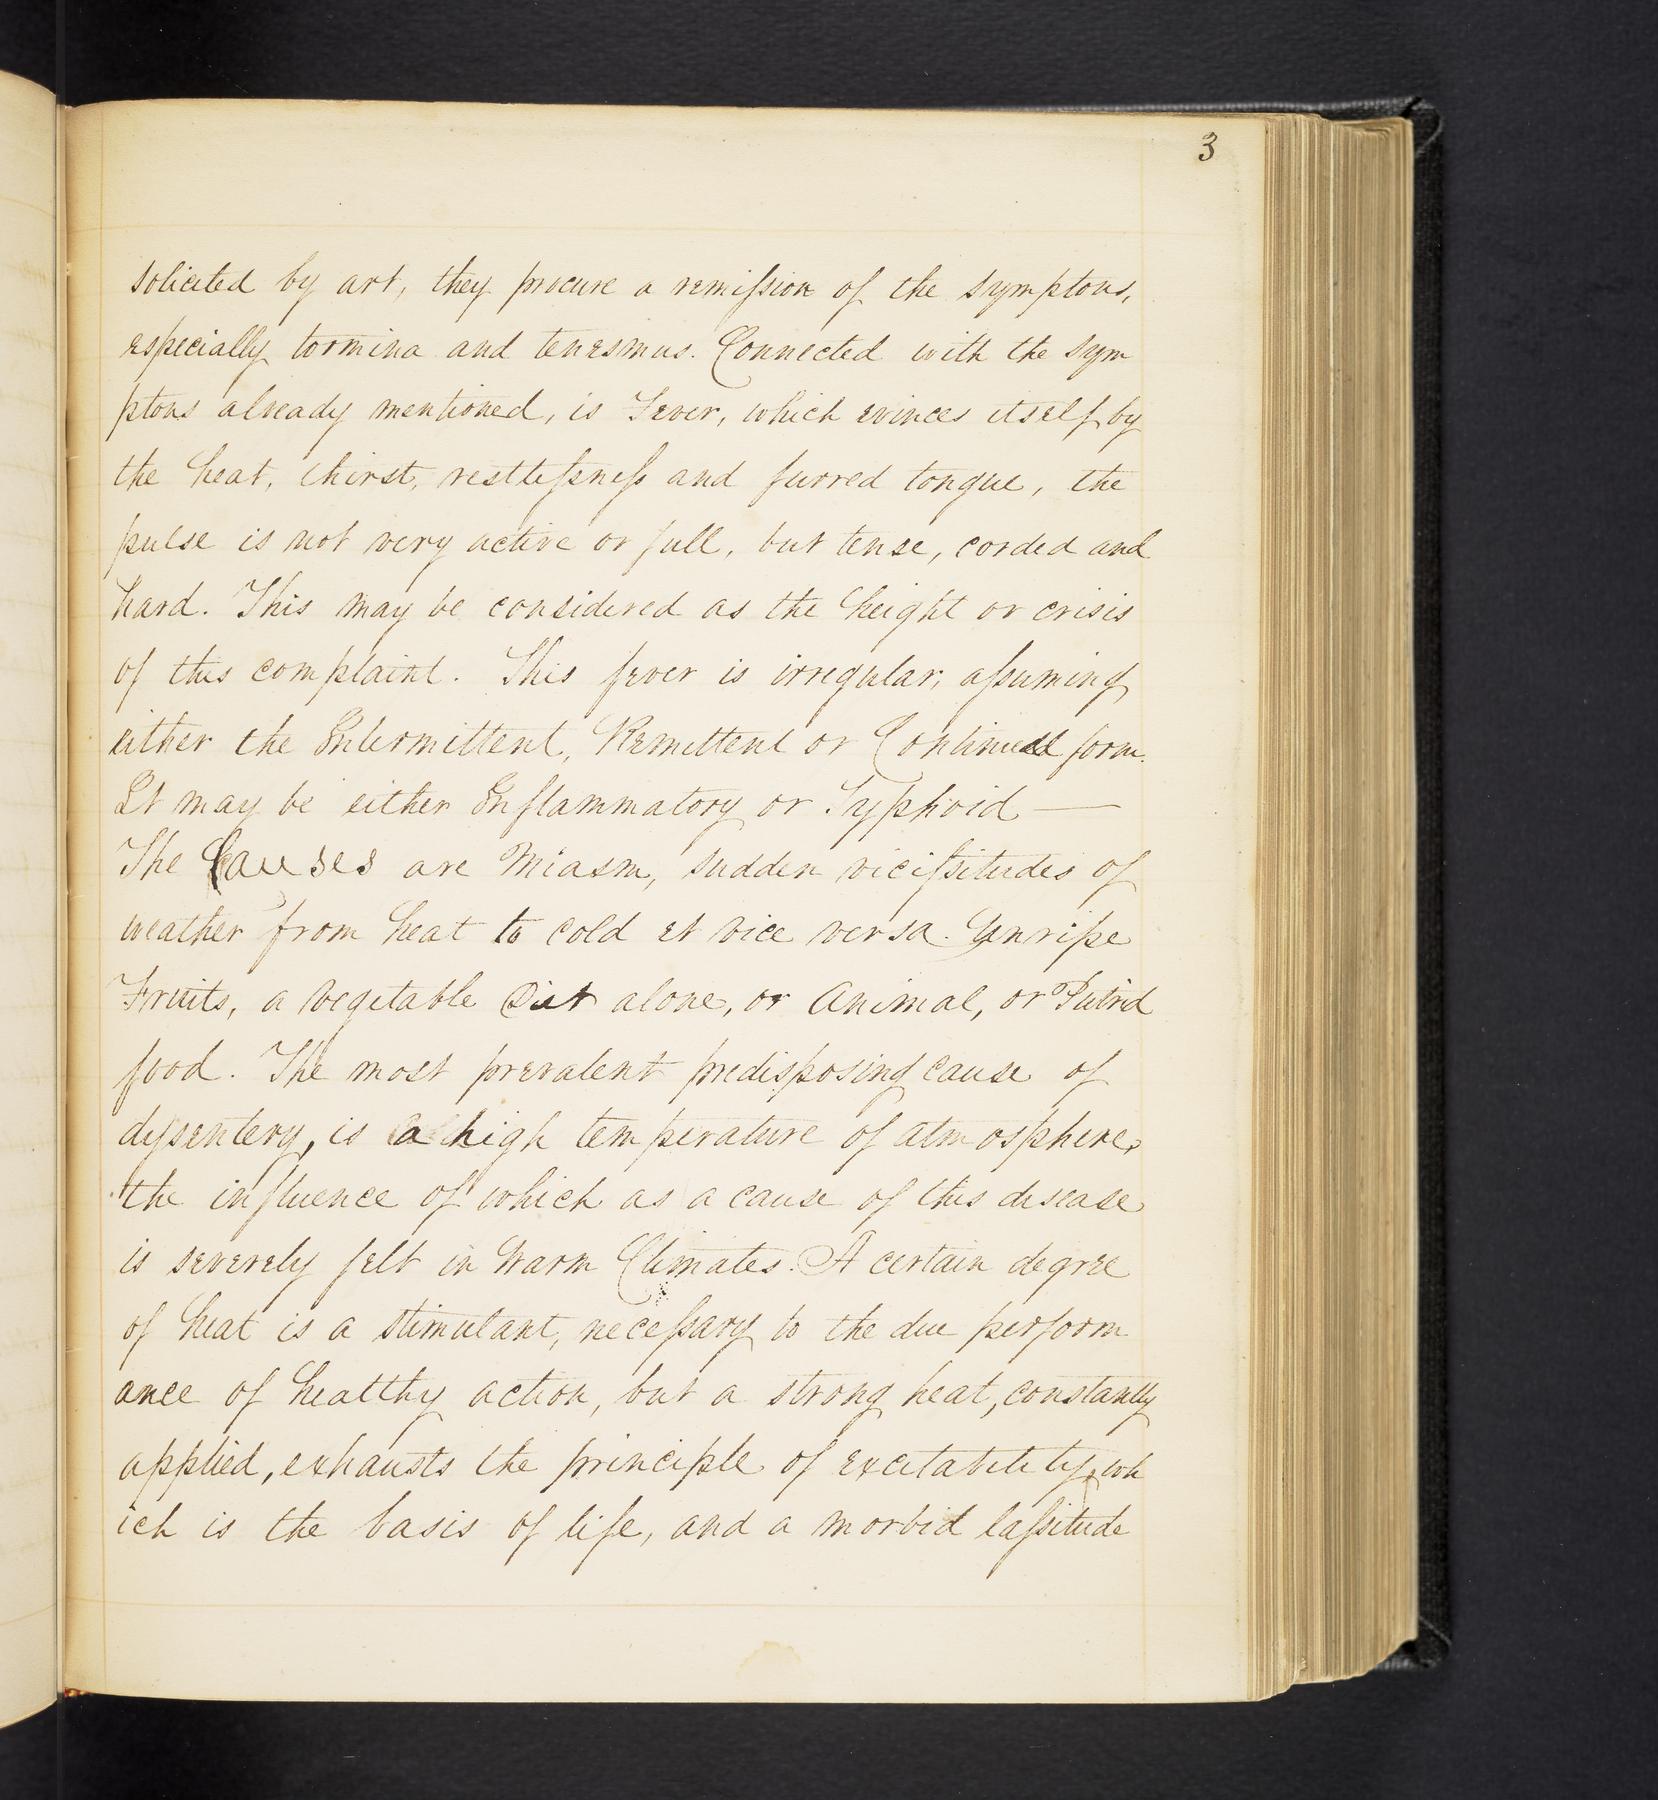 3
solicited by art, they procure a remission of the symptons,
especially tormina and tenesmus. Connected with the sym
ptons already mentioned, is Fever, which evinces itself by
the heat, thirst, restlessness and furred tongue, the
pulse is not very active or full, but tense, corded and
hard. This may be considered as the height or crisis
of this complaint. This fever is irregular, assuming
either the Intermittent, Remittent or Continued form.
It may be either Inflammatory or Typhoid —
The Causes are Miasm, sudden vicissitudes of
weather from heat to cold et vice versa. Unripe
Fruits, a vegetable Diet alone, or Animal, or Putrid
food. The most prevalent predisposing cause of
dysentery, is a high temperature of atmosphere,
the influence of which as a cause of this disease
is severely felt in Warm Climates. A certain degree
of heat is a stimulant, necessary to the due perform
ance of healthy action, but a strong heat, constantly
applied, exhausts the principle of excitability, wh
ich is the basis of life, and a morbid lassitude